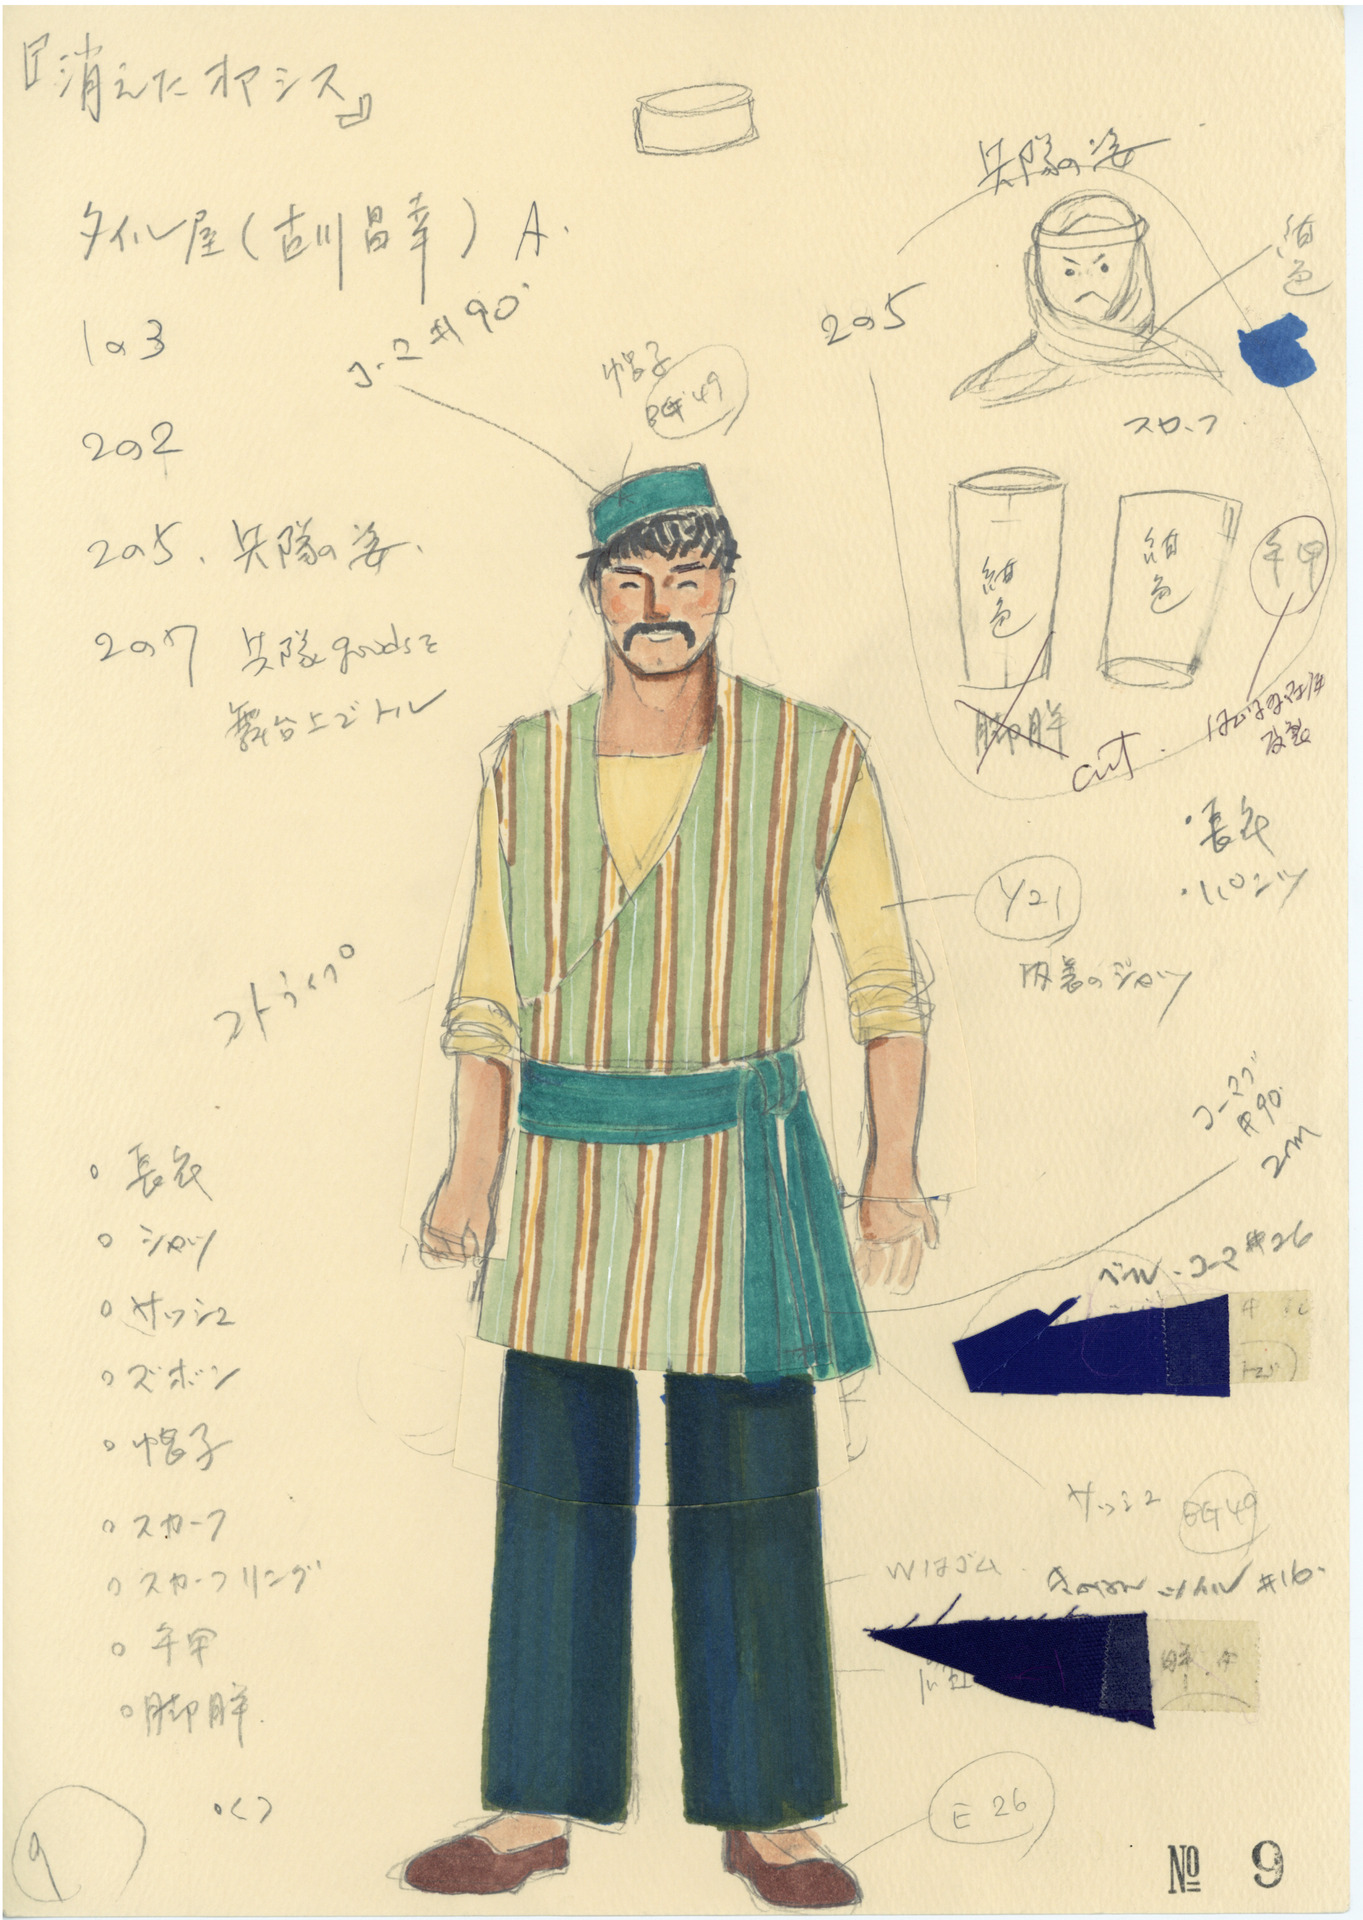 『消えたオアシス』
タイル屋(古川昌幸) A.
1の3
2の2
2の5. 兵隊の姿.
2の7 兵隊goodsを
舞台上でトル
コーマ #90
帽子
BG49
兵隊の姿
2の5
紺色
スカーフ
紺色
紺色
手甲
脚胖
cut.
・長衣
・パンツ
Y21
内着のシャツ
ストライプ
コーマブ
#90
2m
○長衣
○シャツ
○サッシュ
○ズボン
○帽子
○スカーフ
○スカーフリング
○手甲
○脚胖
○くつ
ベール・コーマ#26
サッシュ BG49
Wはゴム
#16
E 26
9
№ 9